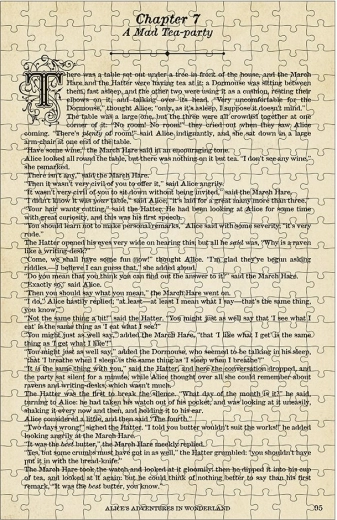 Chapter 7
A Mad Tea-party
There was a table set out under a tree in front of the house, and the March
Hare and the Hatter were having tea at it; a Dormouse was sitting between
them, fast asleep, and the other two were using it as a cushion, resting their
elbows on it, and talking over its head. "Very uncomfortable for the
Dormouse," thought Alice; "only, as it's asleep, I suppose it doesn't mind."
The table was a large one, but the three were all crowded together at one
corner of it: "No room! No room!" they cried out when they saw Alice
coming. "There's plenty of room!" said Alice indignantly, and she sat down in a large
arm-chair at one end of the table.
"Have some wine," the March Hare said in an encouraging tone.
Alice looked all round the table, but there was nothing on it but tea. "I don't see any wine,"
she remarked.
"There isn't any," said the March Hare.
"Then it wasn't very civil of you to offer it," said Alice angrily.
"It wasn't very civil of you to sit down without being invited," said the March Hare.
"I didn't know it was your table," said Alice; "it's laid for a great many more than three."
"Your hair wants cutting," said the Hatter. He had been looking at Alice for some time
with great curiosity, and this was his first speech.
"You should learn not to make personal remarks," Alice said with some severity; "it's very
rude."
The Hatter opened his eyes very wide on hearing this; but all he said was, "Why is a raven
like a writing-desk?"
"Come, we shall have some fun now!" thought Alice. "I'm glad they've begun asking
riddles.—I believe I can guess that," she added aloud.
"Do you mean that you think you can find out the answer to it?" said the March Hare.
"Exactly so," said Alice.
"Then you should say what you mean," the March Hare went on.
"I do," Alice hastily replied; "at least—at least I mean what I say—that's the same thing,
you know."
"Not the same thing a bit!" said the Hatter. "You might just as well say that "I see what I
eat' is the same thing as 'I eat what I see'!"
"You might just as well say," added the March Hare, "that 'I like what I get' is the same
thing as 'I get what I like'!"
"You might just as well say," added the Dormouse, who seemed to be talking in his sleep,
"that 'I breathe when I sleep' is the same thing as 'I sleep when I breathe'!"
"It is the same thing with you," said the Hatter, and here the conversation dropped, and
the party sat silent for a minute, while Alice thought over all she could remember about
ravens and writing-desks, which wasn't much.
The Hatter was the first to break the silence. "What day of the month is it?" he said,
turning to Alice: he had taken his watch out of his pocket, and was looking at it uneasily,
shaking it every now and then, and holding it to his ear.
Alice considered a little, and then said "The fourth."
"Two days wrong!" sighed the Hatter. "I told you butter wouldn't suit the works!" he added
looking angrily at the March Hare.
"It was the best butter," the March Hare meekly replied.
"Yes, but some crumbs must have got in as well," the Hatter grumbled: "you shouldn't have
put it in with the bread-knife."
The March Hare took the watch and looked at it gloomily: then he dipped it into his cup
of tea, and looked at it again: but he could think of nothing better to say than his first
remark, "It was the best butter, you know."
ALICE'S ADVENTURES IN WONDERLAND
95